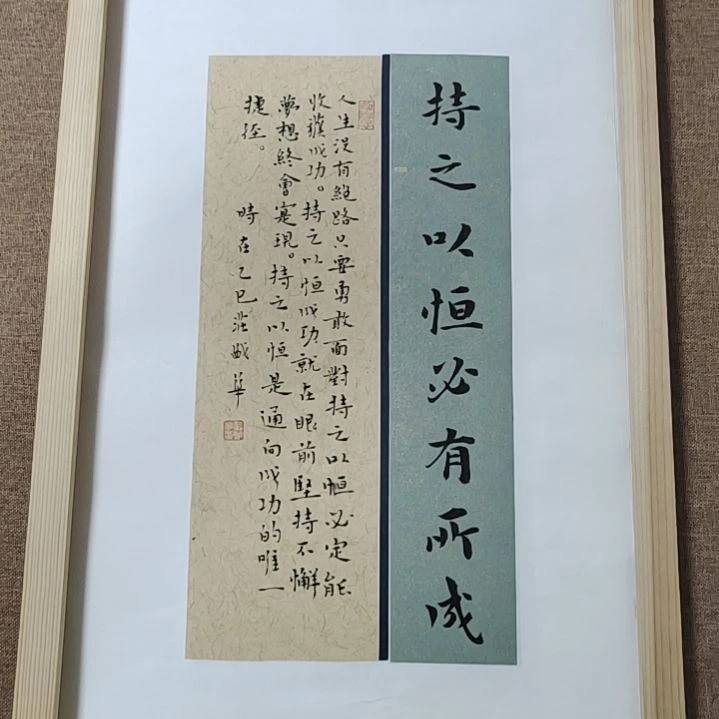 持之以恒必有所成
人生没有絶路只要勇敢面對持之以恒必定能
收穫成功。持之以恒成功就在眼前堅持不懈
夢想終會寔現。持之以恒是通向成功的唯一
捷径。
時在乙巳莊成華